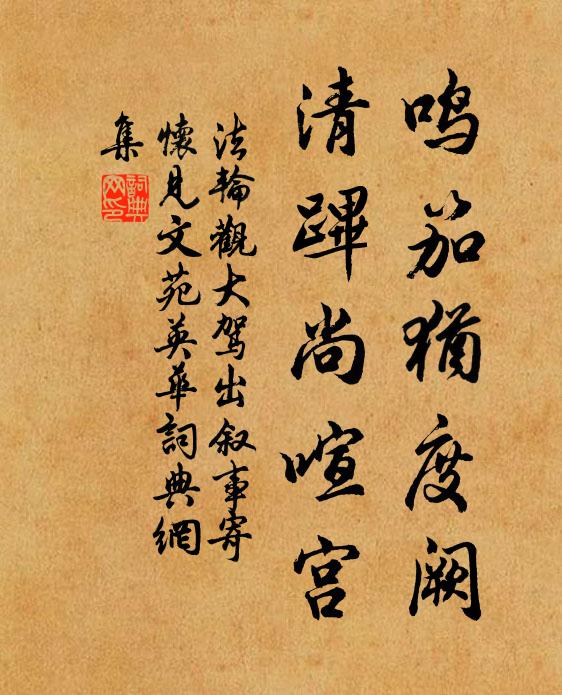 鸣笳猶度阙
清蹕尚喧宫
法輪觀大駕出叙事寄
懷見文苑英華詞典網
集
詞典网印